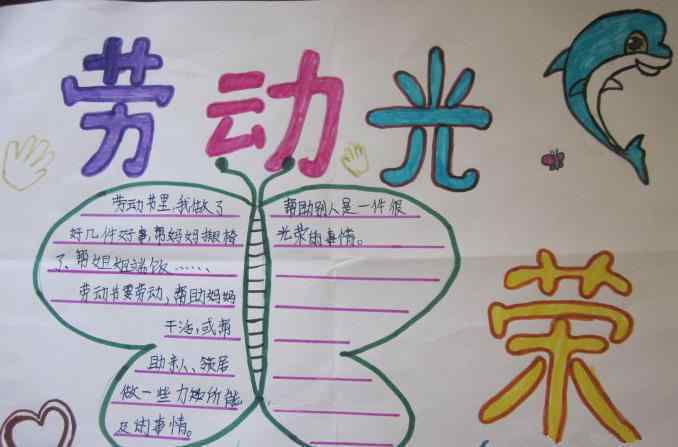 劳动光
荣
劳动节里,我做了
好几件好事,帮妈妈搬椅
了、帮姐姐端饭……
劳动节要劳动,帮助妈妈
干活,或帮
助亲人、邻居
做一些力如所能
及的事情。
帮助别人是一件很
光荣的事情。